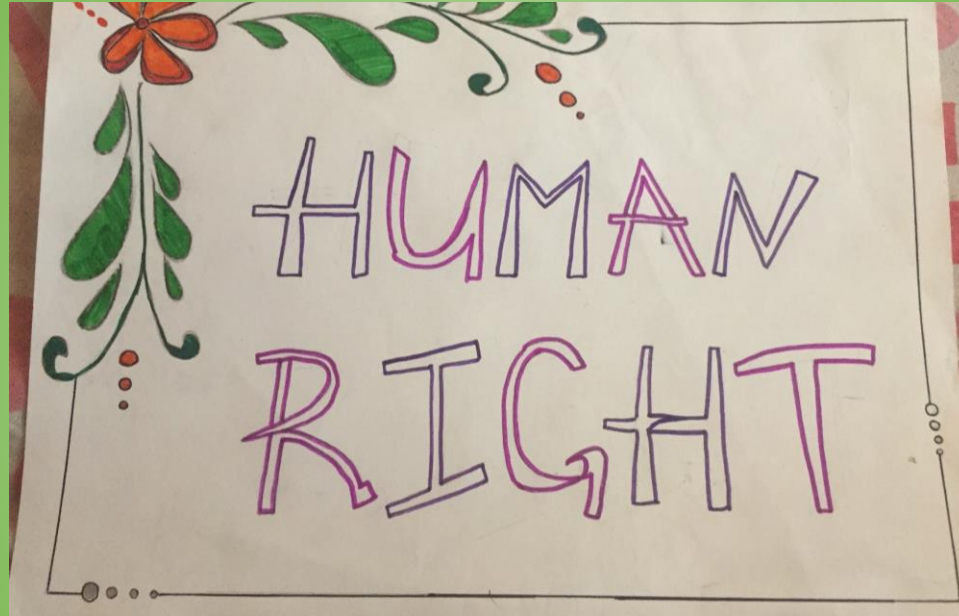 HUMAN
RIGHT